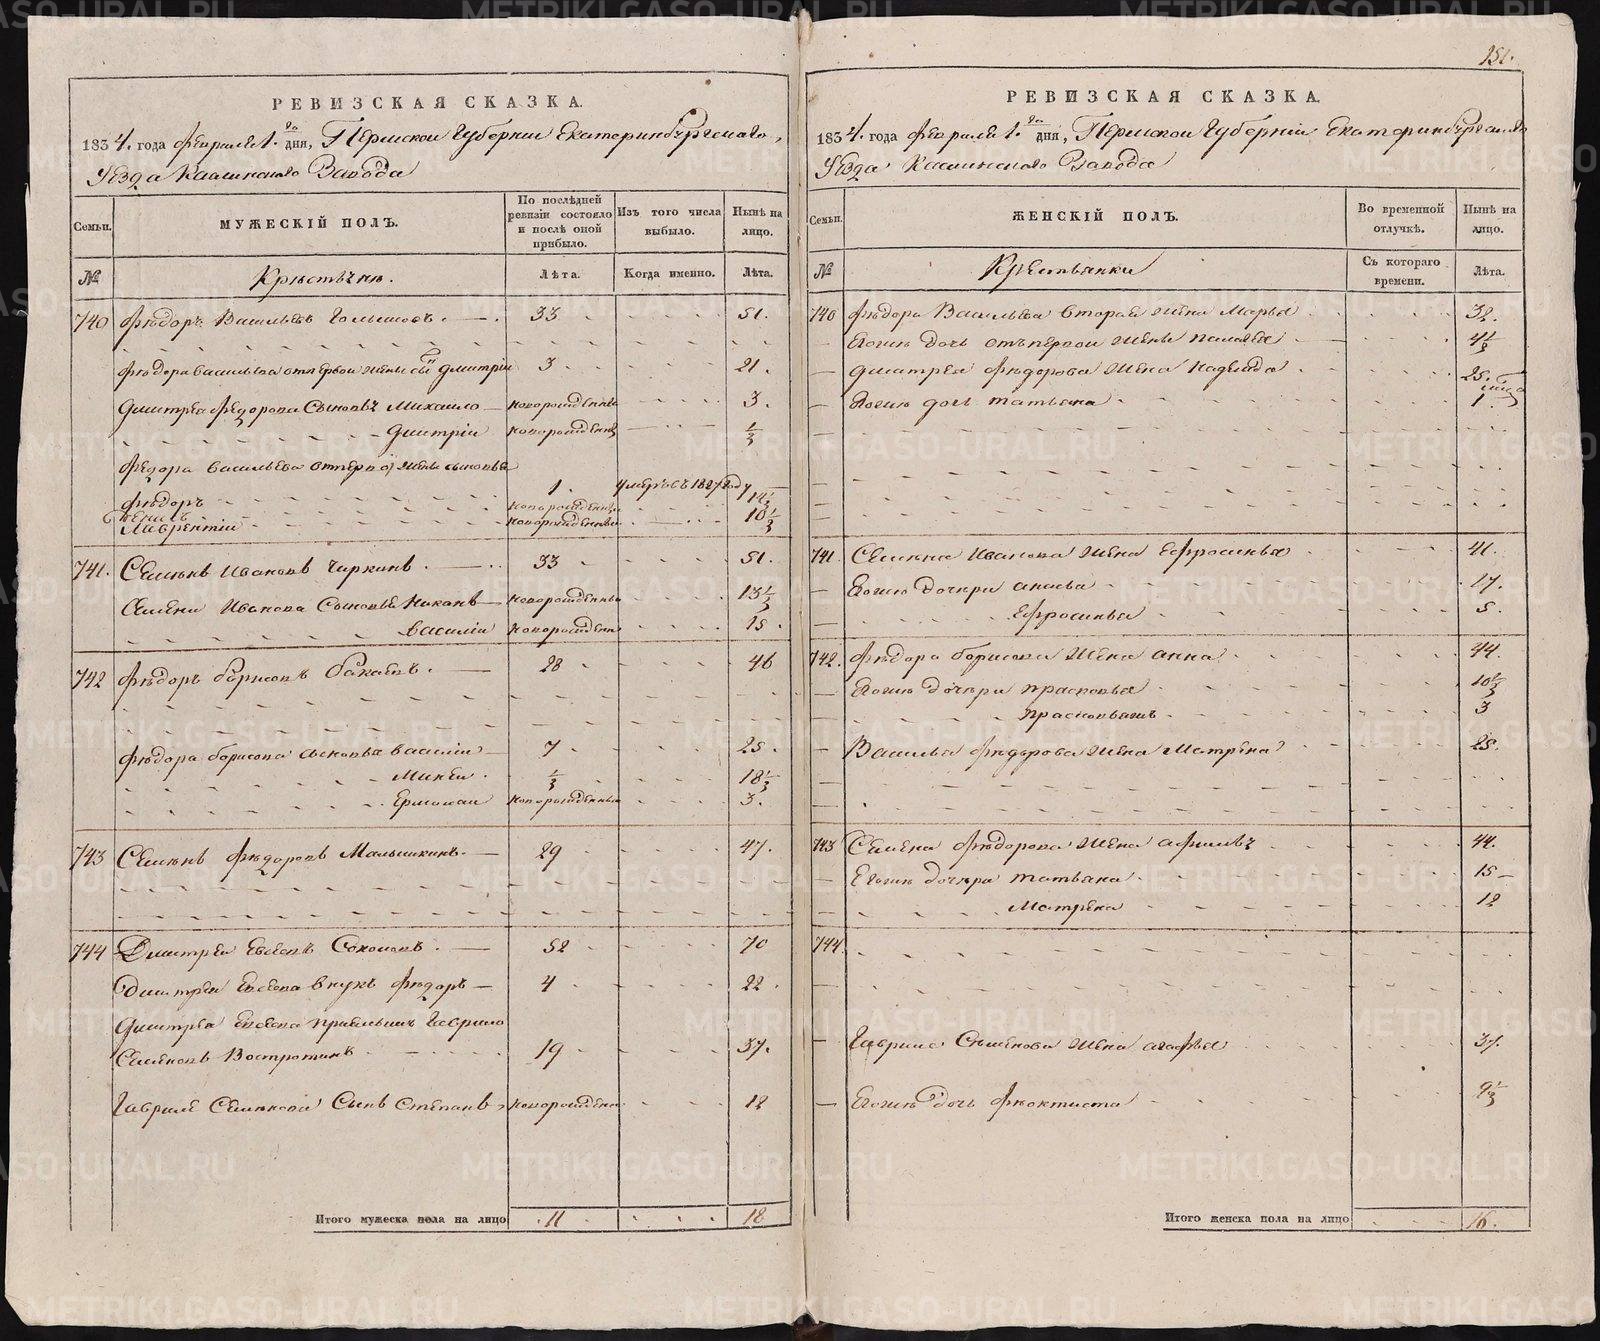 151.
РЕВИЗСКАЯ СКАЗКА.
1834. года февраля 1. го дня, Пермской Губернии Екатеринбургскаго,
Уезда Каслинскаго Завода
Семьи.
МУЖЕСКІЙ ПОЛЪ.
По послѣдней ревизіи состояло и послѣ оной прибыло.
Изъ того числа выбыло.
Нынѣ на лицо.
№
Крестьяне.
Лѣта.
Когда именно.
Лѣта.
740 Федоръ Васильевъ 33 51.
Федора Васильева отъ первой жены сынъ Дмитрій 3 21.
Дмитрея Федорова Сыновья Михайло новорожденны 3.
Дмитрій новорожденны 1/3
Федора Васильева от первой жены сыновья
Федоръ 1. умеръ въ 1827 году
новорожденны 14 1/3
Лаврентій новорожденны 10 1/3
741. Семенъ Ивановъ Чиркинъ 33 51.
Семена Иванова Сыновья новорожденны 13 1/3
Василій новорожденны 15.
742 Федоръ Борисовъ 28 46
Федора Борисова сыновья Василій 7 25.
Михей 1/3 18 1/3
Ермолай новорожденны 3.
743 Семенъ Федоровъ Малышкинъ 29 47.
744 Дмитрей Евсеевъ Соколовъ 52 70
Дмитрея Евсеева внукъ Федоръ 4 22.
Дмитрея Евсеева приемышъ Гаврило
Семеновъ Востротинъ 19 37.
Гаврила Семенова Сынъ Степанъ новорожденны 12
Итого мужеска пола на лицо 11 18
РЕВИЗСКАЯ СКАЗКА.
1834. года февраля 1. го дня, Пермской Губерніи Екатеринбургскаго
Уезда Каслинскаго Завода
Семьи.
ЖЕНСКІЙ ПОЛЪ.
Во временной отлучкѣ.
Нынѣ на лицо.
№
Крестьянки
Съ котораго времени.
Лѣта.
740 Федора Васильева вторая жена Марья 32.
Егожъ дочь отъ первой жены Пелагея 4 1/3
Дмитрея Федорова жена Надежда 25.
Егожъ дочь Татьяна 1
741. Семена Иванова жена Ефросинья 41.
Егожъ дочери 17.
Ефросинья 5.
742. Федора Борисова жена Анна 44.
Егожъ дочери Прасковья 10 1/3
Прасковья 3
Василья Федорова жена Матрена 25.
743 Семена Федорова жена 44.
Егожъ дочери Татьяна 15
Матрена 12
744.
Гаврила Семенова жена Агафья 37.
Егожъ дочь Феоктиста 9 1/3
Итого женска пола на лицо 16.
METRIKI.GASO-URAL.RU